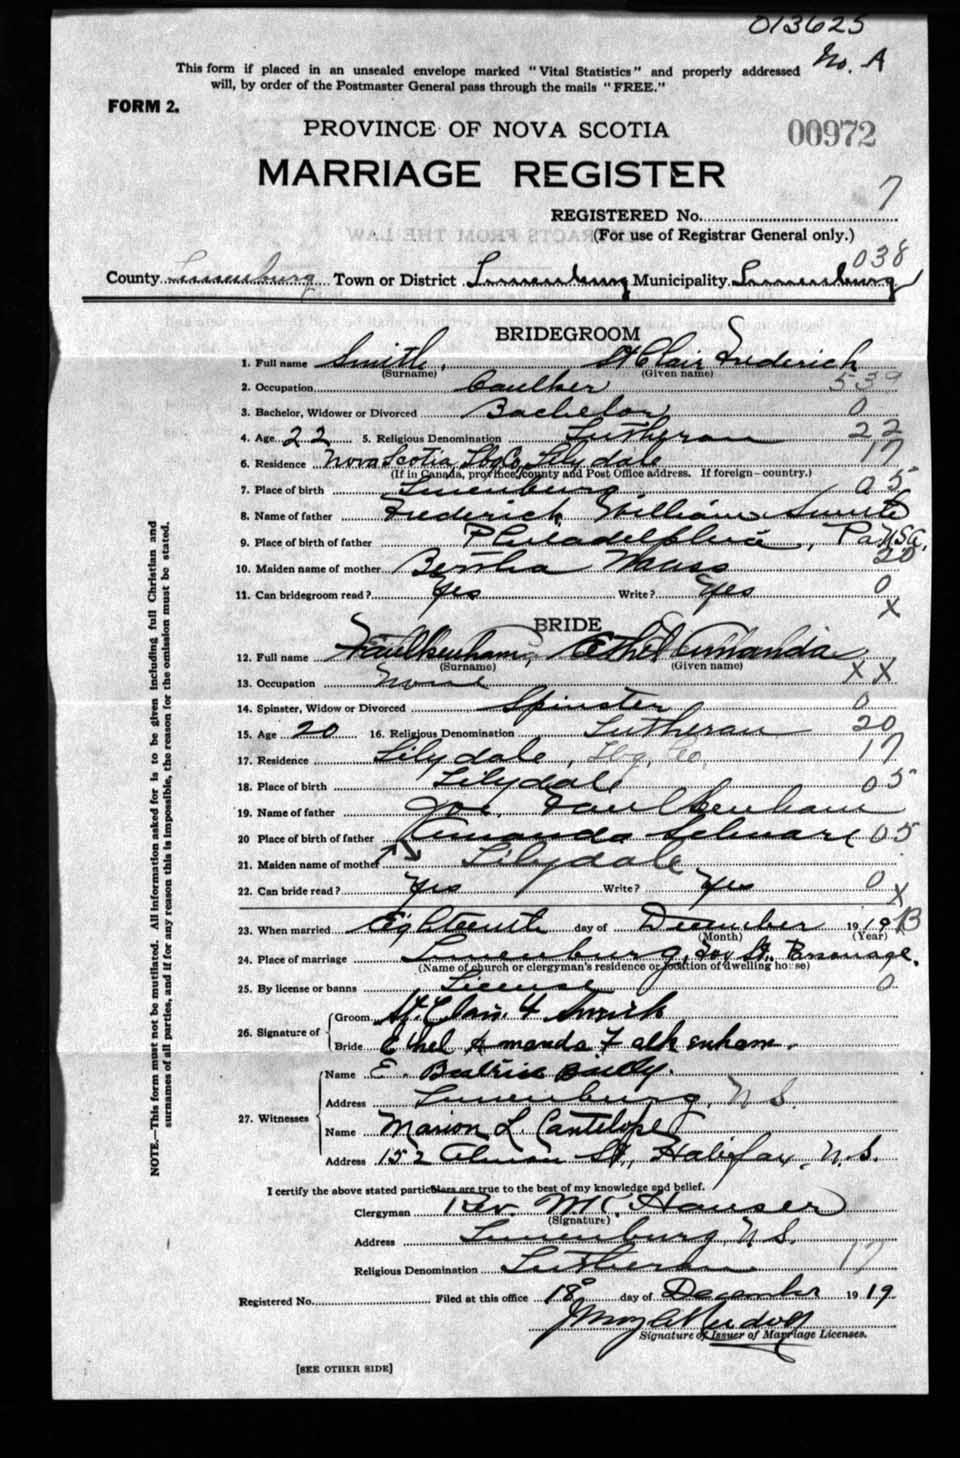 013625
No. A
This form if placed in an unsealed envelope marked "Vital Statistics" and properly addressed
will, by order of the Postmaster General pass through the mails "FREE."
FORM 2.
PROVINCE OF NOVA SCOTIA
00972
MARRIAGE REGISTER
7
REGISTERED No.
(For use of Registrar General only.)
038
County Lunenburg Town or District Lunenburg Municipality Lunenburg
BRIDEGROOM
1. Full name Smith, St Clair Frederick
(Surname) (Given name)
2. Occupation Caulker 539
3. Bachelor, Widower or Divorced Bachelor 0
4. Age 22 5. Religious Denomination Lutheran 22
6. Residence Nova Scotia Lbg Co, Lilydale 17
(If in Canada, province, county and Post Office address. If foreign—country.)
7. Place of birth Lunenburg 05
8. Name of father Frederick William Smith
9. Place of birth of father Philadelphia, Pa USA.
20
10. Maiden name of mother Bertha
11. Can bridegroom read? Yes Write? Yes 0
X
BRIDE
12. Full name Faulkenham, Ethel Amanda
(Surname) (Given name)
13. Occupation None XX
14. Spinster, Widow or Divorced Spinster 0
15. Age 20 16. Religious Denomination Lutheran 20
17. Residence Lilydale, Lbg. Co. 17
18. Place of birth Lilydale 05
19. Name of father Joe. Faulkenham
20 Place of birth of father Amanda 05
21. Maiden name of mother Lilydale
22. Can bride read? Yes Write? Yes 0
X
23. When married Eighteenth day of December 1919 B
(Month) (Year)
24. Place of marriage Lunenburg, St. Parsonage.
(Name of church or clergyman's residence or location of dwelling house)
25. By license or banns License 0
26. Signature of
Groom St. Clair F Smith
Bride Ethel Amanda Falkenham.
27. Witnesses
Name E. Beatrice
Address Lunenburg, N.S.
Name Marion L. Cantelope
Address 152 Almon St, Halifax, N.S.
I certify the above stated particulars are true to the best of my knowledge and belief.
Clergyman Rev. Hauser
(Signature)
Address Lunenburg, N.S.
Religious Denomination Lutheran 17
Registered No. Filed at this office 18 day of December 1919
Signature of Issuer of Marriage Licenses.
[SEE OTHER SIDE]
NOTE.—This form must not be mutilated. All information asked for is to be given including full Christian and
surnames of all parties, and if for any reason this is impossible, the reason for the omission must be stated.